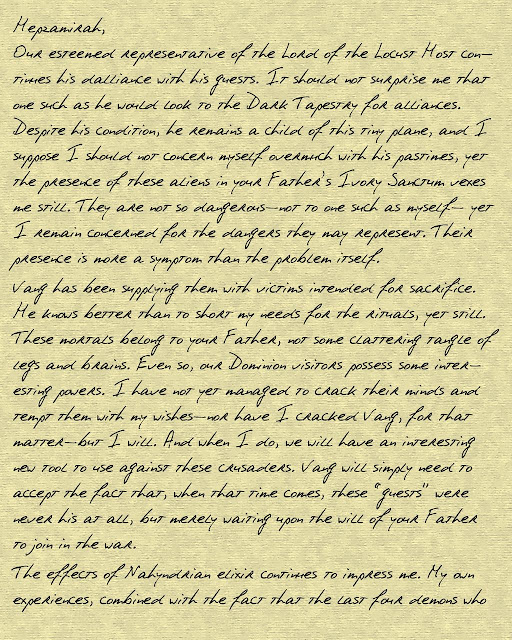 Hepzamirah,
Our esteemed representative of the Lord of the Locust Host con-
tinues his dalliance with his guests. It should not surprise me that
one such as he would look to the Dark Tapestry for alliances.
Despite his condition, he remains a child of this tiny plane, and I
suppose I should not concern myself overmuch with his pastimes, yet
the presence of these aliens in your Father's Ivory Sanctum vexes
me still. They are not so dangerous—not to one such as myself—yet
I remain concerned for the dangers they may represent. Their
presence is more a symptom than the problem itself.
Vang has been supplying them with victims intended for sacrifice.
He knows better than to short my needs for the rituals, yet still.
These mortals belong to your Father, not some clattering tangle of
legs and brains. Even so, our Dominion visitors possess some inter-
esting powers. I have not yet managed to crack their minds and
tempt them with my wishes—nor have I cracked Vang, for that
matter—but I will. And when I do, we will have an interesting
new tool to use against these crusaders. Vang will simply need to
accept the fact that, when that time comes, these "guests" were
never his at all, but merely waiting upon the will of your Father
to join in the war.
The effects of Nahyndrian elixir continues to impress me. My own
experiences, combined with the fact that the last four demons who